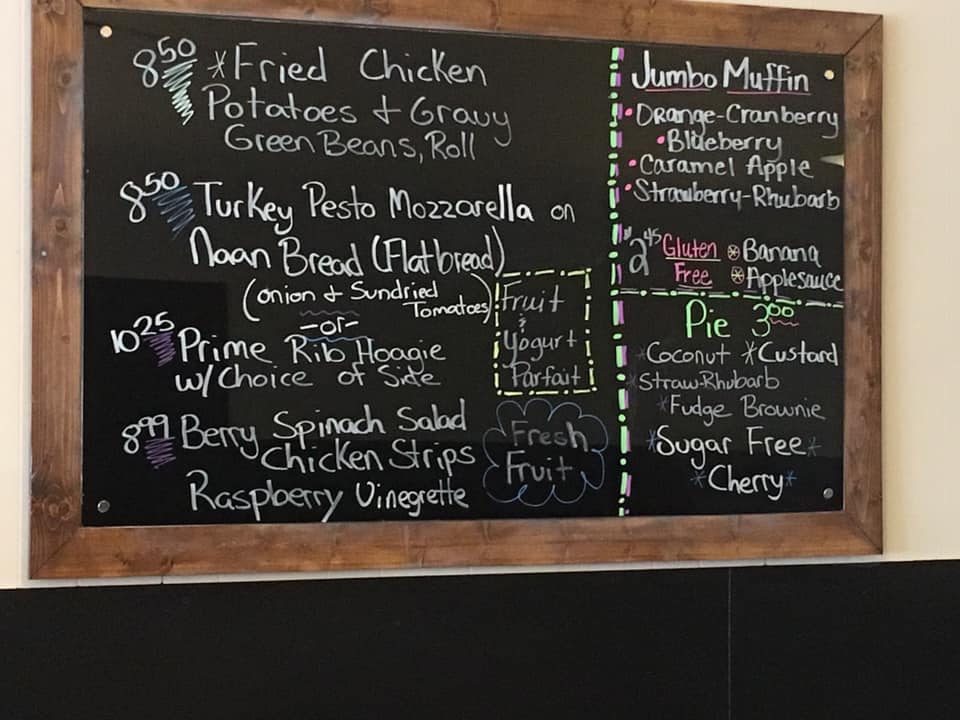 8.50 *Fried Chicken
Potatoes + Gravy
Green Beans, Roll
8.50 Turkey Pesto Mozzarella on
Naan Bread (Flatbread)
(onion & Sundried
Tomatoes)
-or-
10.25 Prime Rib Hoagie
w/Choice of Side
8.99 Berry Spinach Salad
Chicken Strips
Raspberry Vinegrette
Fruit
&
Yogurt
Parfait
Fresh
Fruit
Jumbo Muffin
•Orange-Cranberry
•Blueberry
•Caramel Apple
•Strawberry-Rhubarb
2.45 Gluten *Banana
Free *Applesauce
Pie 3.00
*Coconut *Custard
*Straw-Rhubarb
*Fudge Brownie
*Sugar Free*
*Cherry*